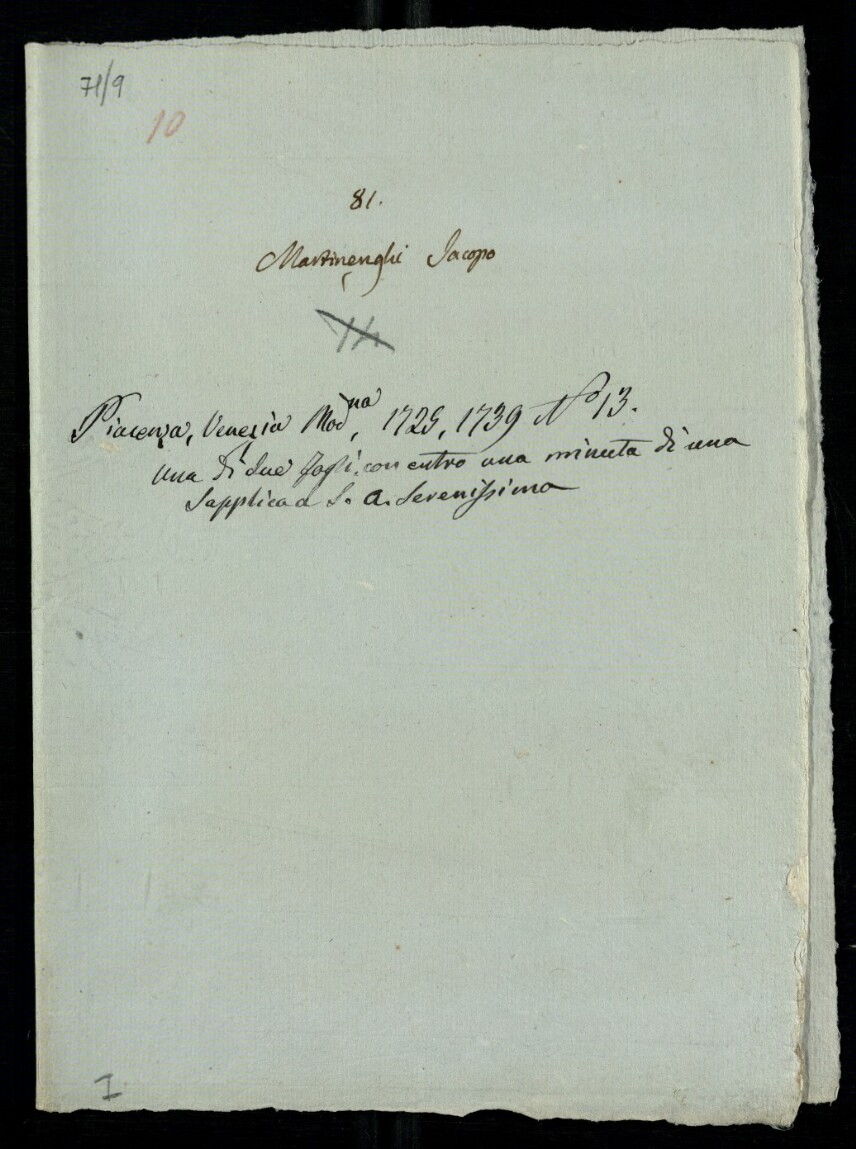 71/9
10
81.
Martinenghi Jacopo
14
Piacenza, Venezia Modna, 1725, 1739 No 13.
una di due fogli, con entro una minuta di una
Supplica a S. A. Serenissima
I